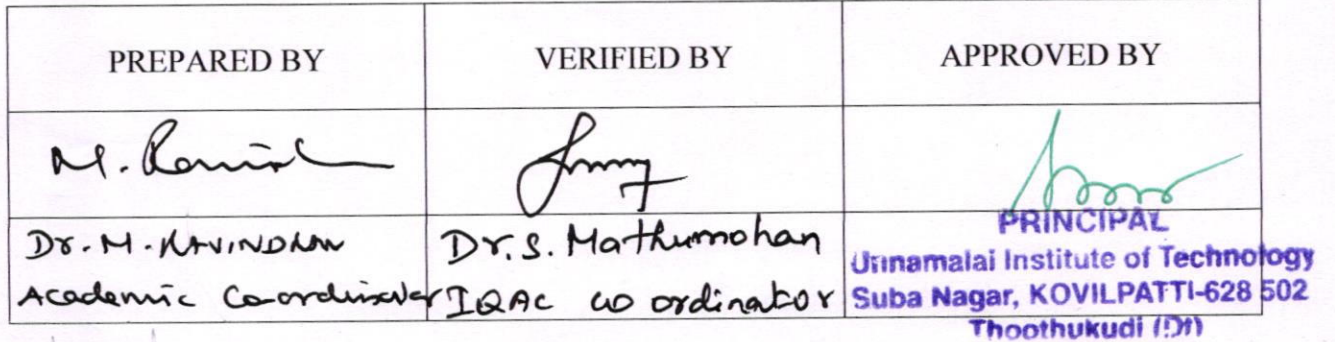 PREPARED BY
VERIFIED BY
APPROVED BY
M.
Dr. M. RAVINDRAN
Academic Co-ordinator
Dr. S. Mathumohan
IQAC co ordinator
PRINCIPAL
Unnamalai Institute of Technology
Suba Nagar, KOVILPATTI-628 502
Thoothukudi (Dt)